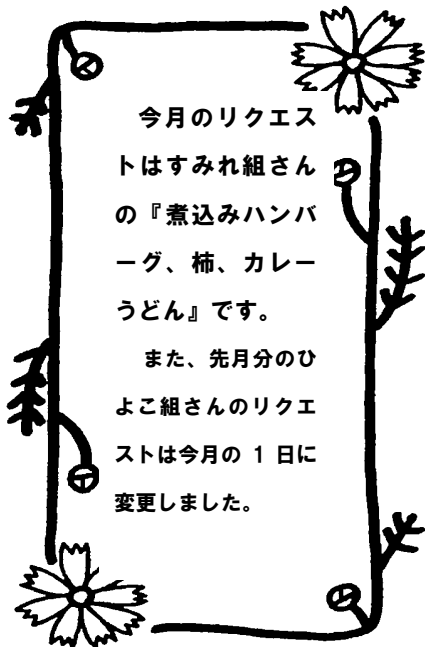 今月のリクエス
トはすみれ組さん
の『煮込みハンバ
ーグ、柿、カレー
うどん』です。
また、先月分のひ
よこ組さんのリクエ
ストは今月の 1 日に
変更しました。